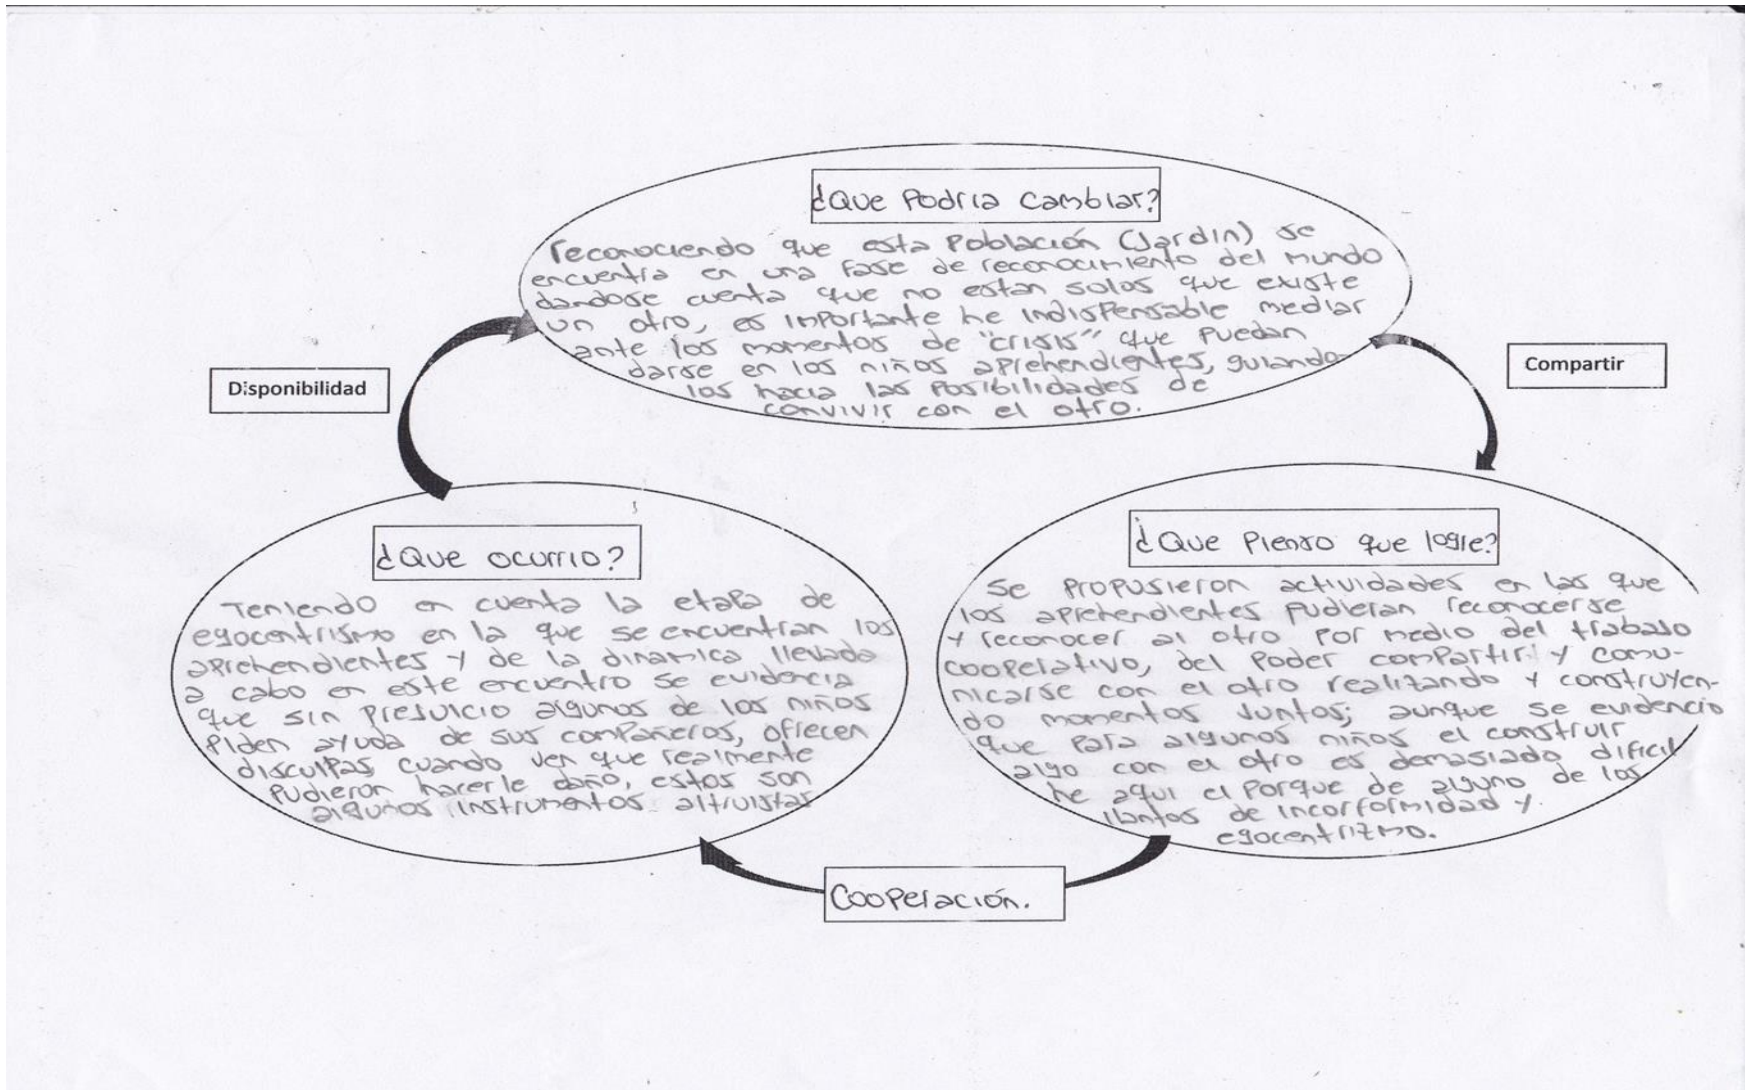 ¿Que Podria Cambiar?
reconociendo que esta Población (Jardin) se
encuentra en una fase de reconocimiento del mundo
dandose cuenta que no estan solos que existe
un otro, es importante he indispensable mediar
ante los momentos de "crisis" que puedan
darse en los niños aprehendientes, guiando-
los hacia las posibilidades de
convivir con el otro.
Disponibilidad
Compartir
¿Que ocurrio?
Teniendo en cuenta la etapa de
egocentrismo en la que se encuentran los
aprehendientes y de la dinamica llevada
a cabo en este encuentro se evidencia
que sin prejuicio algunos de los niños
piden ayuda de sus compañeros, ofrecen
disculpas cuando ven que realmente
pudieron hacerle daño, estos son
algunos instrumentos altruistas
¿Que Pienso que logre?
Se propusieron actividades en las que
los aprehendientes pudieran reconocerse
y reconocer al otro por medio del trabajo
cooperativo, del poder compartir y comu-
nicarse con el otro realizando y construyen-
do momentos juntos; aunque se evidencio
que para algunos niños el construir
algo con el otro es demasiado dificil
he aqui el porque de alguno de los
llantos de incorformidad y
egocentrizmo.
Cooperación.